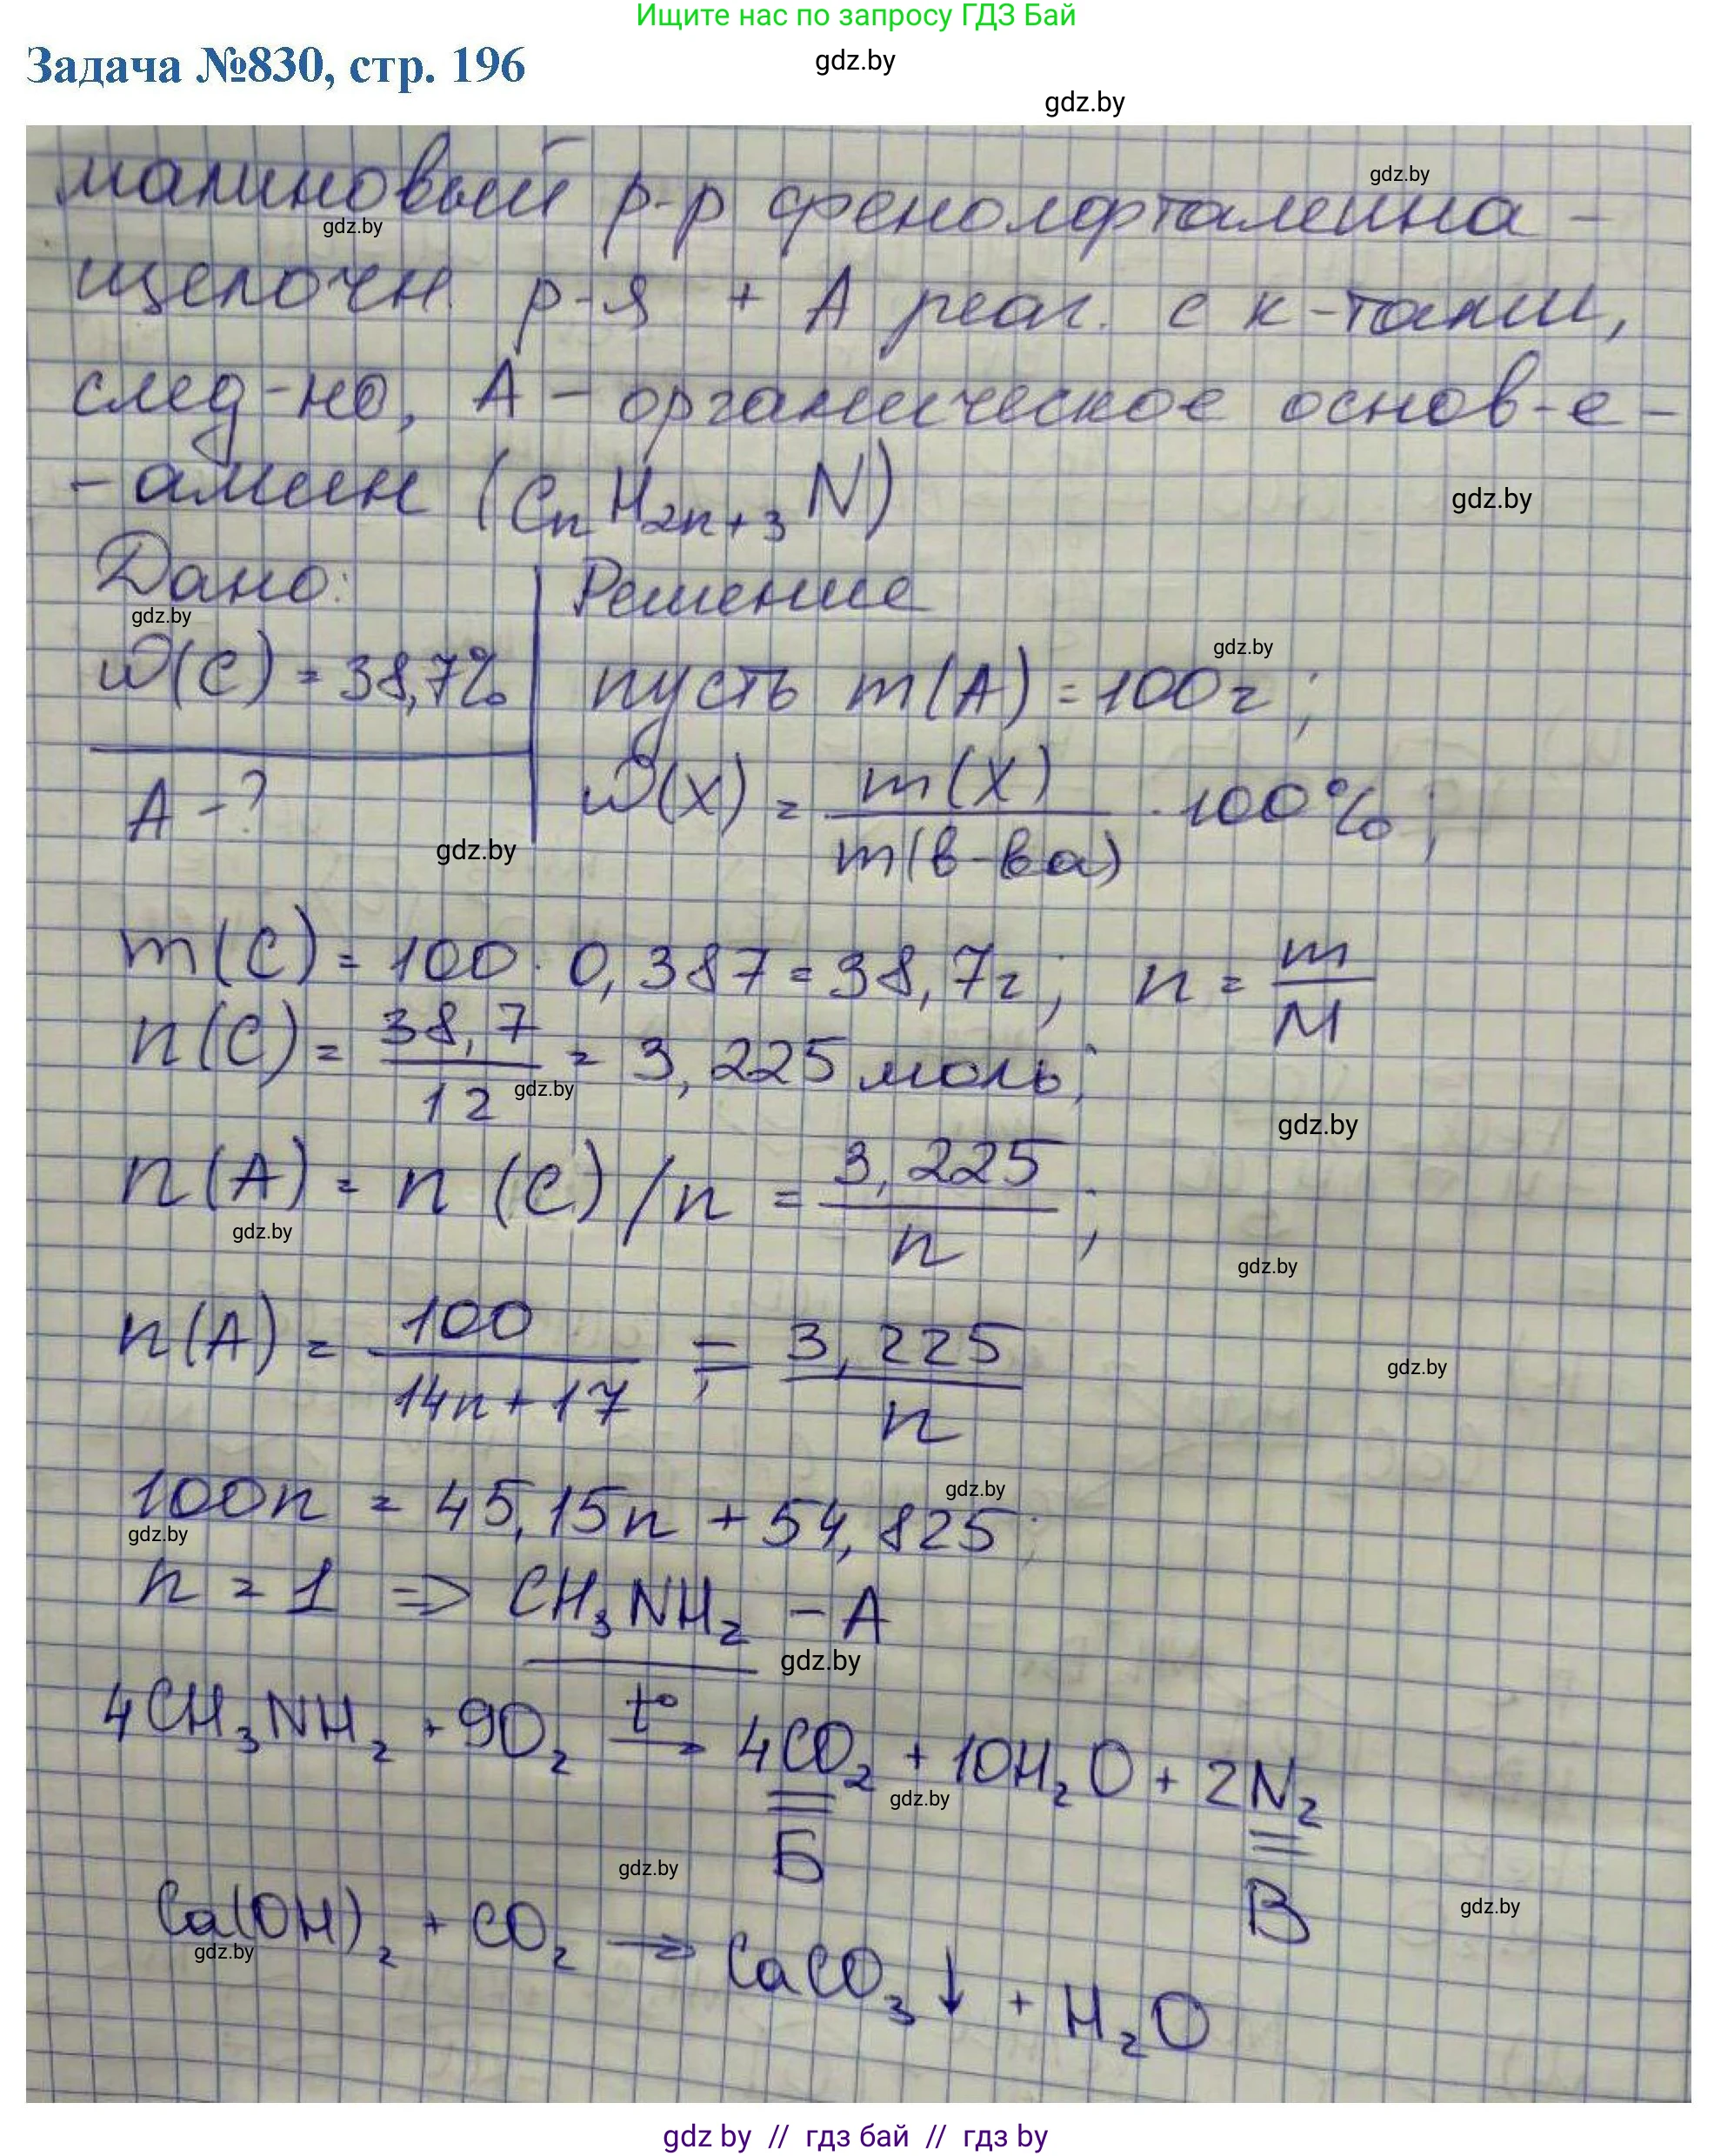 Ищите нас по запросу ГДЗ Бай
Задача №830, стр. 196
gdz.by
gdz.by
малиновый р-р фенолфталеина -
gdz.by
gdz.by
щелочн. р-я + А реаг. с к-тами,
след-но, А - органическое основ-е -
- амин (CnH2n+3N)
gdz.by
Дано:
Решение
gdz.by
gdz.by
ω(C) = 38,7%
пусть m(A) = 100г;
A - ?
ω(X) = m(X) / m(в-ва) · 100%;
gdz.by
m(C) = 100 · 0,387 = 38,7г; n = m/M
n(C) = 38,7/12 = 3,225 моль;
gdz.by
gdz.by
n(A) = n(C)/n = 3,225/n;
gdz.by
gdz.by
n(A) = 100/(14n+17) = 3,225/n
gdz.by
100n = 45,15n + 54,825;
gdz.by
gdz.by
n = 1 => CH3NH2 - A
gdz.by
4CH3NH2 + 9O2 t° → 4CO2 + 10H2O + 2N2
gdz.by
Б
В
gdz.by
gdz.by
Ca(OH)2 + CO2 → CaCO3↓ + H2O
gdz.by
gdz by // гдз бай // гдз by